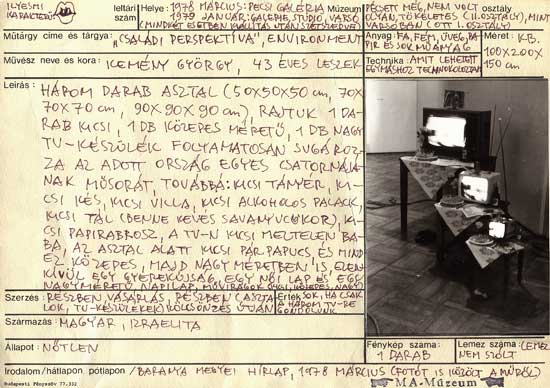 ILYESMI KARAKTERŰ
leltári szám
Helye: 1978 MÁRCIUS: PÉCSI GALÉRIA
1979 JANUÁR: GALERIE STUDIO, VARSÓ
(MINDKÉT ESETBEN KIÁLLÍTÁS UTÁN SZÉTSZEDVE)
Múzeum
osztály
PÉCSETT MÉG NEM VOLT
OLYAN TÖKÉLETES (II. OSZTÁLY), MINT
VARSÓBAN (OTT I. OSZTÁLY)
Műtárgy címe és tárgya: „CSALÁDI PERSPEKTÍVA”, ENVIRONMENT
Anyag: FA, FÉM, ÜVEG, PA-
PÍR ÉS SOK MŰANYAG
Méret: KB.
100X200X
150 cm
Művész neve és kora: KEMÉNY GYÖRGY, 43 ÉVES LESZEK
Technika: AMIT LEHETETT
EGYMÁSHOZ TECHNOKOLOZTAM
Leírás: HÁROM DARAB ASZTAL (50X50X50 cm, 70X
70X70 cm, 90X90X90 cm), RAJTUK 1 DA-
RAB KICSI, 1 DB KÖZEPES MÉRETŰ, 1 DB NAGY
TV-KÉSZÜLÉK FOLYAMATOSAN SUGÁROZ-
ZA AZ ADOTT ORSZÁG EGYES CSATORNÁJÁ-
NAK MŰSORÁT, TOVÁBBÁ: KICSI TÁNYÉR, KI-
CSI KÉS, KICSI VILLA, KICSI ALKOHOLOS PALACK,
KICSI TÁL (BENNE KEVÉS SAVANYÚCUKOR), KI-
CSI PAPIRABROSZ, A TV-N KICSI MEZTELEN BA-
BA, AZ ASZTAL ALATT KICSI PÁR PAPUCS ÉS MIND-
EZ KÖZEPES, MAJD NAGY MÉRETBEN IS, EZEN-
KÍVÜL EGY GYEREKÚJSÁG, EGY NŐI LAP ÉS EGY
NAGYMÉRETŰ NAPILAP, MŰVIRÁGOK (KICSI, KÖZEPES, NAGY)
Szerzés: RÉSZBEN VÁSÁRLÁS, RÉSZBEN (ASZTA-
LOK, TV-KÉSZÜLÉKEK) KÖLCSÖNZÉS ÚTJÁN
Érték: SOK, HA CSAK
A HÁROM TV-RE
GONDOLUNK
Származás: MAGYAR, IZRAELITA
Állapot: NŐTLEN
Fénykép száma:
1 DARAB
Lemez száma: (LEMEZ
NEM SZÓLT)
Irodalom/hátlapon, pótlapon/ BARANYA MEGYEI HÍRLAP, 1978 MÁRCIUS (FOTÓT IS KÖZÖLT A MŰRŐL)
Budapesti Fényszöv 77.332
MA-Múzeum